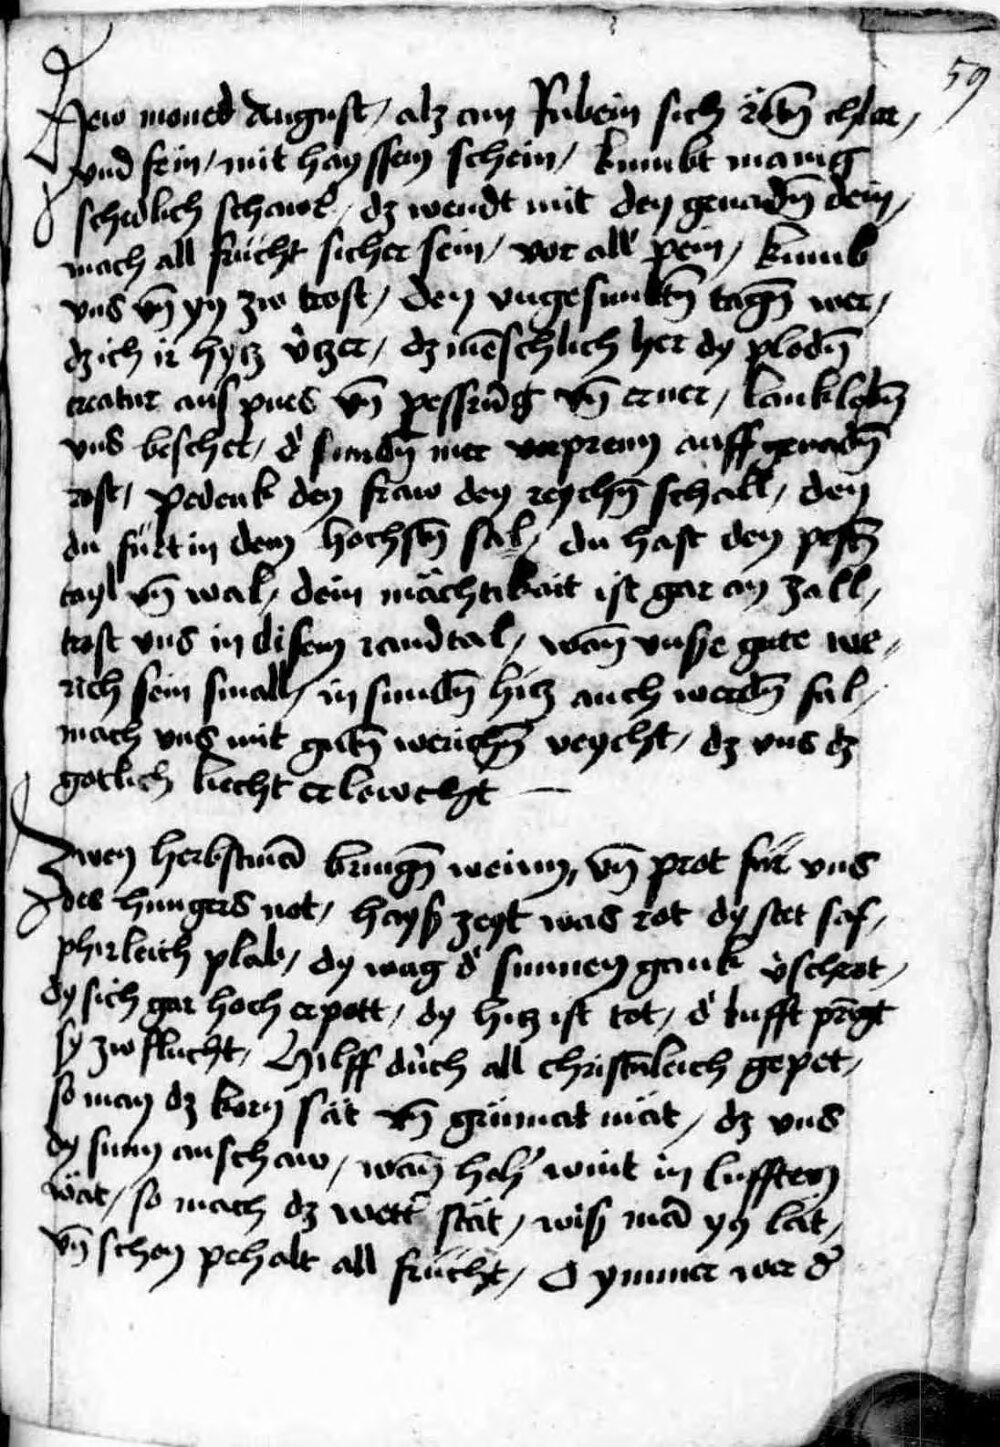 59
Hew moned August / alz ain Rubein sich rötn̄ chlar /
und fein / mit hayssem schein / kumbt manig
schedlich schawr̄ / dz wendt mit den genadn̄ dein /
mach all frücht sicher sein / vor all' pein / kumb
uns vn̄ yn zw trost / den ungesuntn̄ tagn̄ wer /
dz ich ir hytz v̓tzer / dz mēschlich her dy plodn̄
creatur aus pues vn̄ pessrūg vn̄ erner / lanklebn̄
uns bescher / d' sundn̄ mer verprenn auff genadn̄
rost / Pedenk den fraw den reychn̄ schall / den
du fürt in dem hochstn̄ sal / du hast den pestn̄
tayl vn̄ wal / dein mächtikait ist gar an zall /
trost uns in disem iamdtal / wan̄ unsse gute we /
rich sein small / in sundn̄ hitz auch werdn̄ fal /
mach uns mit gutn̄ werichn̄ veycht / dz uns dz
gotlich liecht erlewchgt —
Zwen herbstmād bringn̄ weinn / vn̄ prot für uns
des hungers not / hayss zeyt was rot dy stet saf /
phirleich plab / dy wag d' sunnen gank v̓schrot /
dy sich gar hoch erpott / dy hitz ist tot / d' lufft prīgt
sy zw flucht / Hilff durch all christn̄leich gepet /
so man dz korn sät vn̄ grünmat mät / dz uns
dy sunn anschaw / wan̄ holr̄ wint in lufften
wät / so mach dz wett' stät / wiss mād yn lät /
vn̄ schon pehalt all frücht / O ymmer wer d'